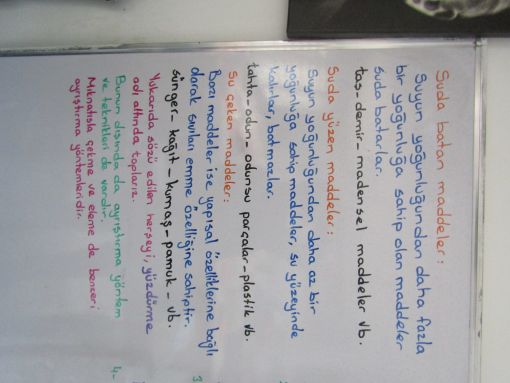 Suda batan maddeler:
Suyun yoğunluğundan daha fazla
bir yoğunluğa sahip olan maddeler
suda batarlar.
taş-demir-madensel maddeler vb.
Suda yüzen maddeler:
Suyun yoğunluğundan daha az bir
yoğunluğa sahip maddeler, su yüzeyinde
kalırlar, batmazlar.
tahta-odun-odunsu parçalar-plastik vb.
Su çeken maddeler:
Bazı maddeler ise yapısal özelliklerine bağlı
olarak sıvıları emme özelliğine sahiptir.
sünger-kağıt-kumaş-pamuk-vb.
Yukarıda sözü edilen herşeyi, yüzdürme
adı altında toplarız.
Bunun dışında da ayrıştırma yöntem
ve teknikleri de vardır.
Mıknatısla çekme ve eleme de benzeri
ayrıştırma yöntemleridir.
3
4-